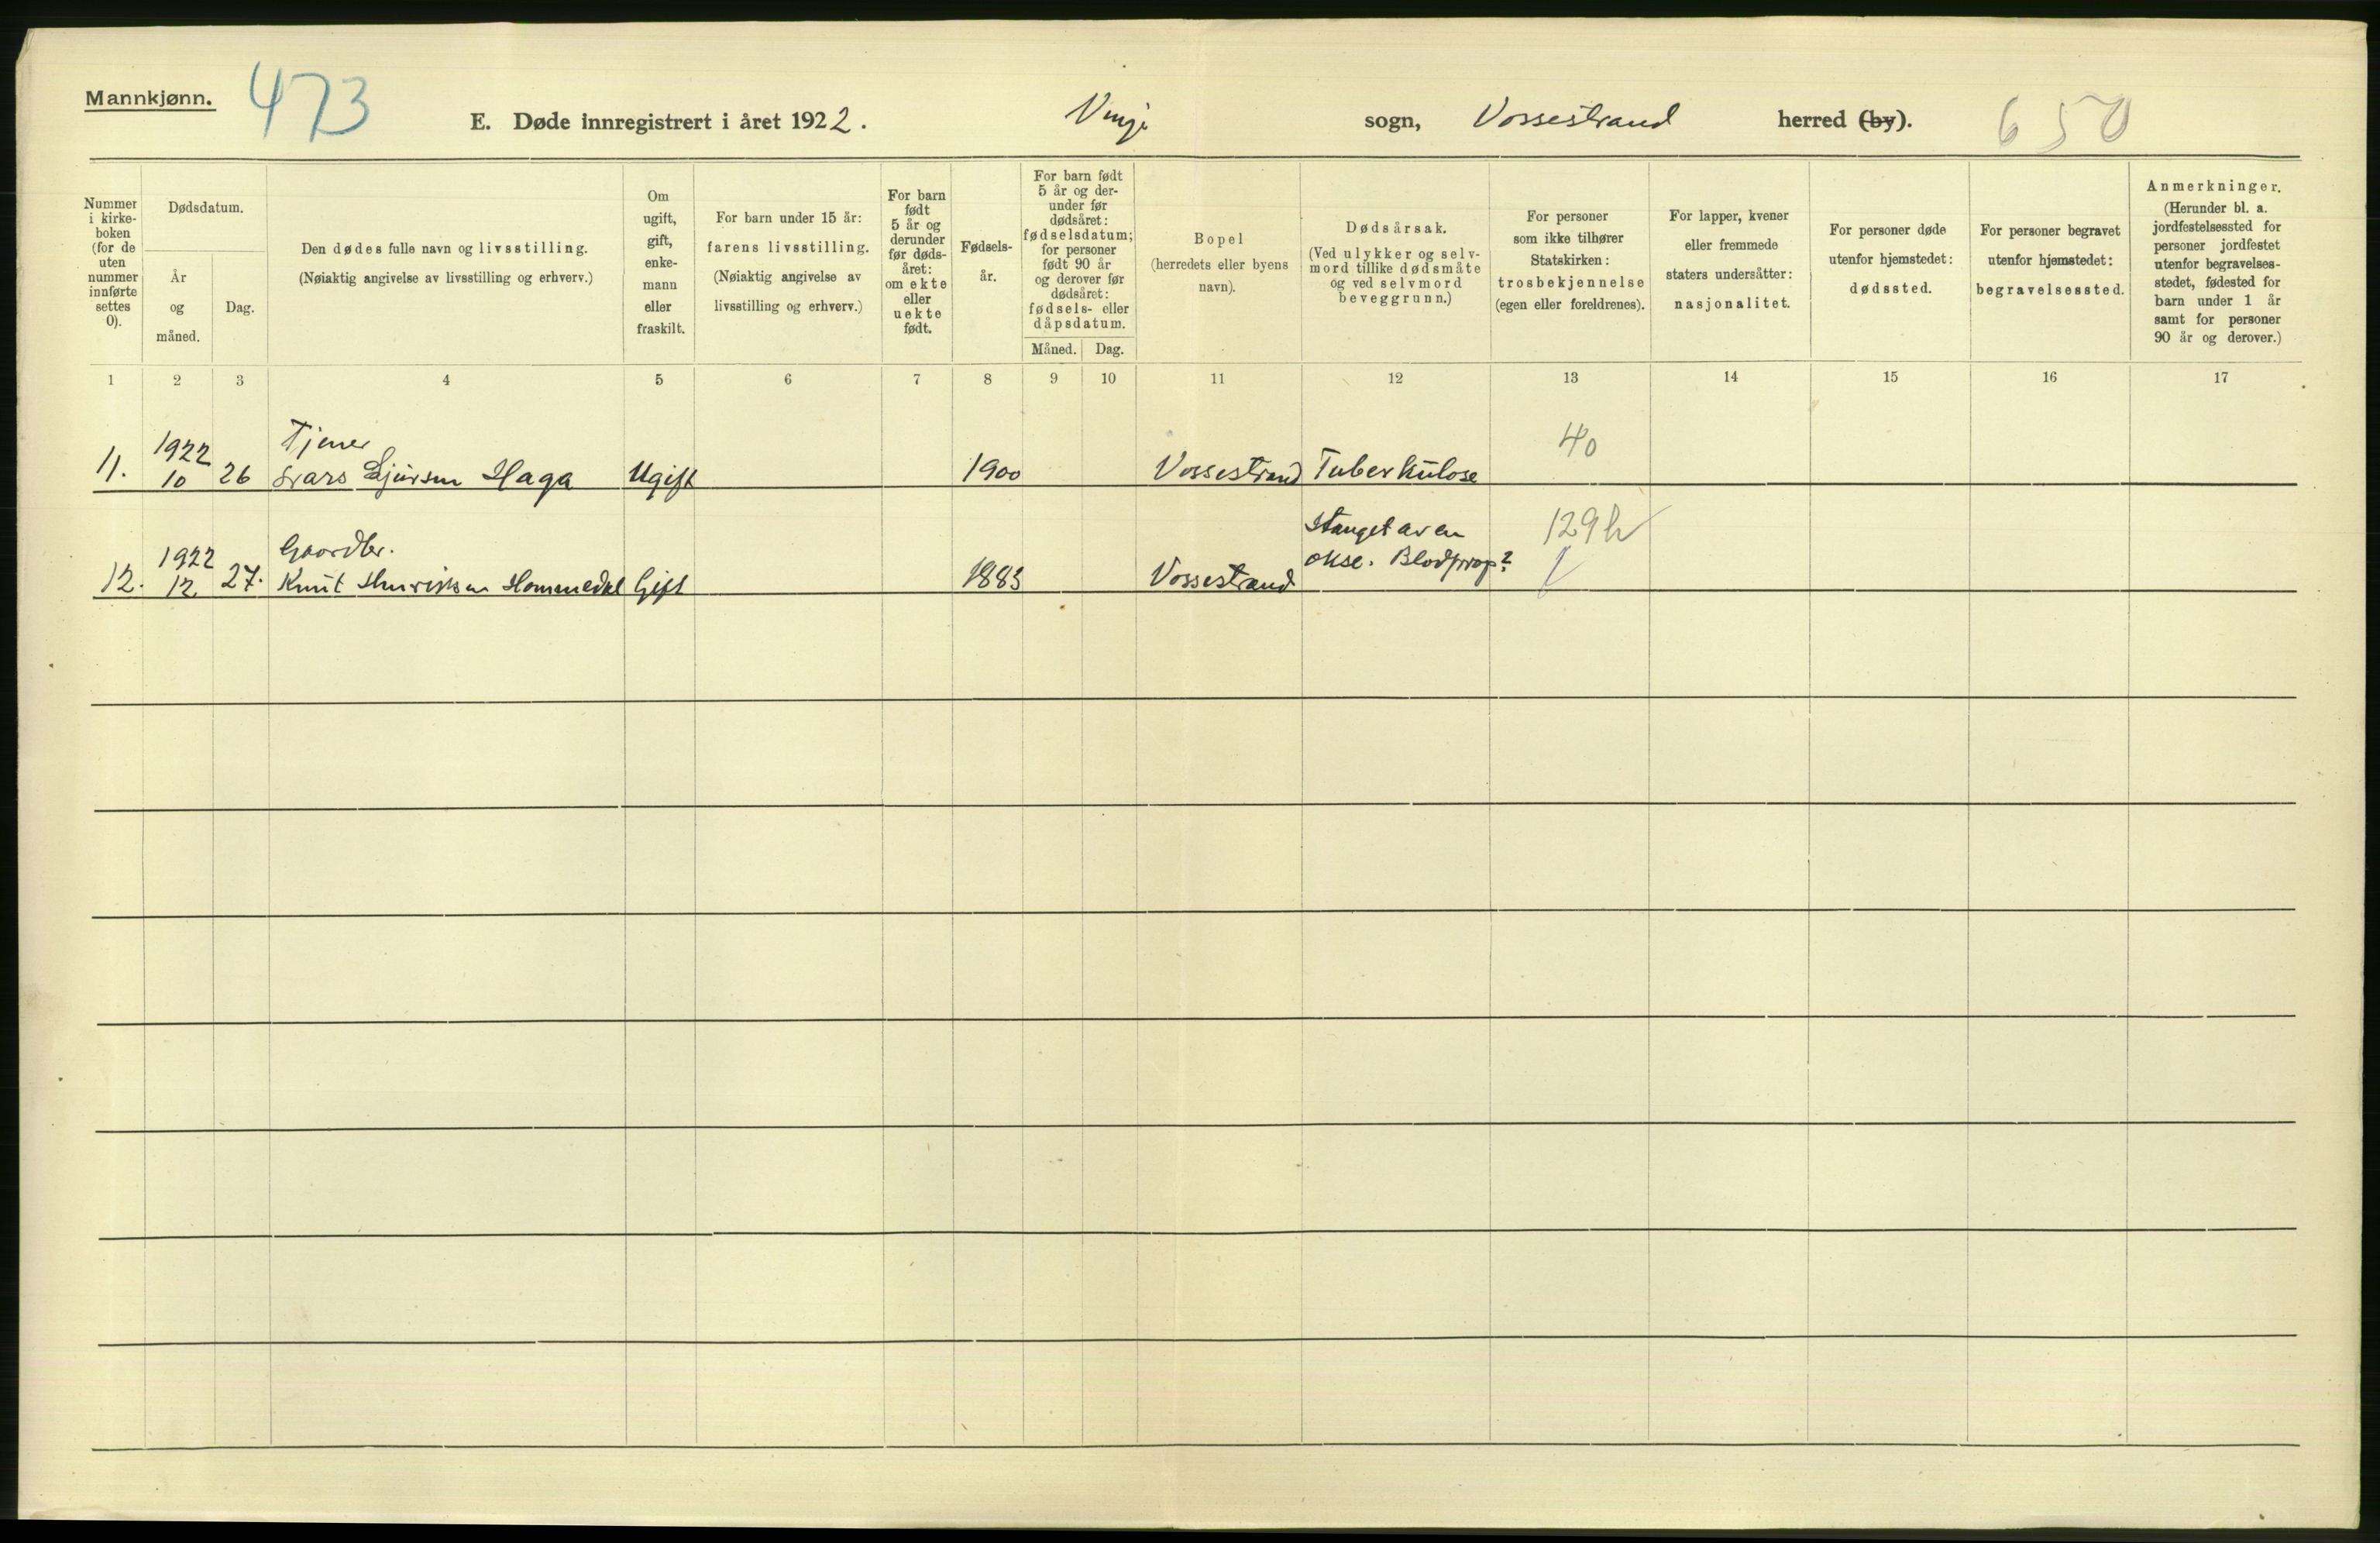 Mannkjønn.
473
E. Døde innregistrert i året 1922.
Vinje sogn, Vossestrand herred (by).
650
Nummer i kirke-boken (for de uten nummer innførte settes 0).
Dødsdatum.
År og måned.
Dag.
Den dødes fulle navn og livsstilling.
(Nøiaktig angivelse av livsstilling og erhverv.)
Om ugift, gift, enke-mann eller fraskilt.
For barn under 15 år:
farens livsstilling.
(Nøiaktig angivelse av
livsstilling og erhverv.)
For barn født 5 år og derunder før døds-året: om ekte eller uekte født.
Fødsels-år.
For barn født 5 år og der-under før dødsåret: fødselsdatum; for personer født 90 år og derover før dødsåret: fødsels- eller dåpsdatum.
Måned. Dag.
Bopel
(herredets eller byens
navn).
Dødsårsak.
(Ved ulykker og selv-
mord tillike dødsmåte
og ved selvmord
beveggrunn.)
For personer
som ikke tilhører
Statskirken:
trosbekjennelse
(egen eller foreldrenes).
For lapper, kvener
eller fremmede
staters undersåtter:
nasjonalitet.
For personer døde
utenfor hjemstedet:
dødssted.
For personer begravet
utenfor hjemstedet:
begravelsessted.
Anmerkninger.
(Herunder bl. a.
jordfestelsessted for
personer jordfestet
utenfor begravelses-
stedet, fødested for
barn under 1 år
samt for personer
90 år og derover.)
1 2 3 4 5 6 7 8 9 10 11 12 13 14 15 16 17
1922 Tjener 40
11. 10 26 Lars Sjursen Haga Ugift 1900 Vossestrand Tuberkulose
1922 Gaardbr. Stanget av en 129h
12. 12. 27. Knut Hommedal Gift 1883 Vossestrand okse. Blodprop?